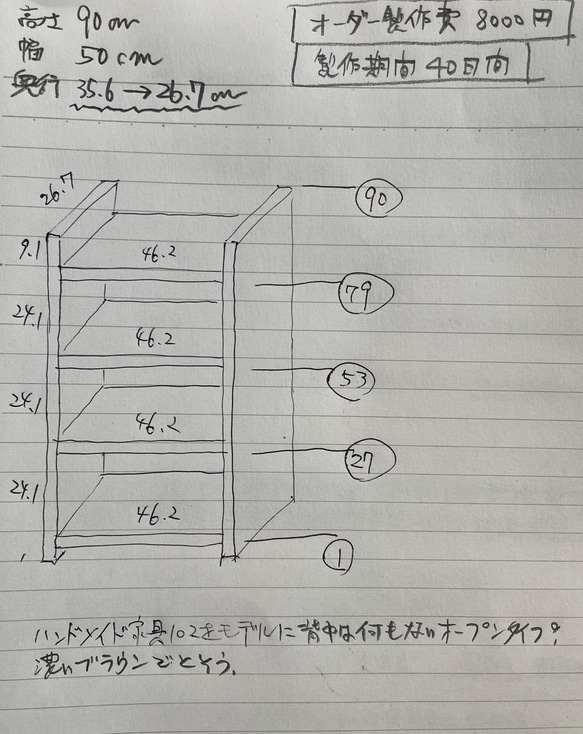 高さ 90cm
幅 50cm
奥行 35.6→26.7cm
オーダー製作費 8000円
製作期間 40日間
26.7
90
9.1
46.2
79
24.1
46.2
53
24.1
46.2
27
24.1
46.2
1
ハンドメイド家具102をモデルに背中は何もないオープンタイプ。
濃いブラウンでとそう。